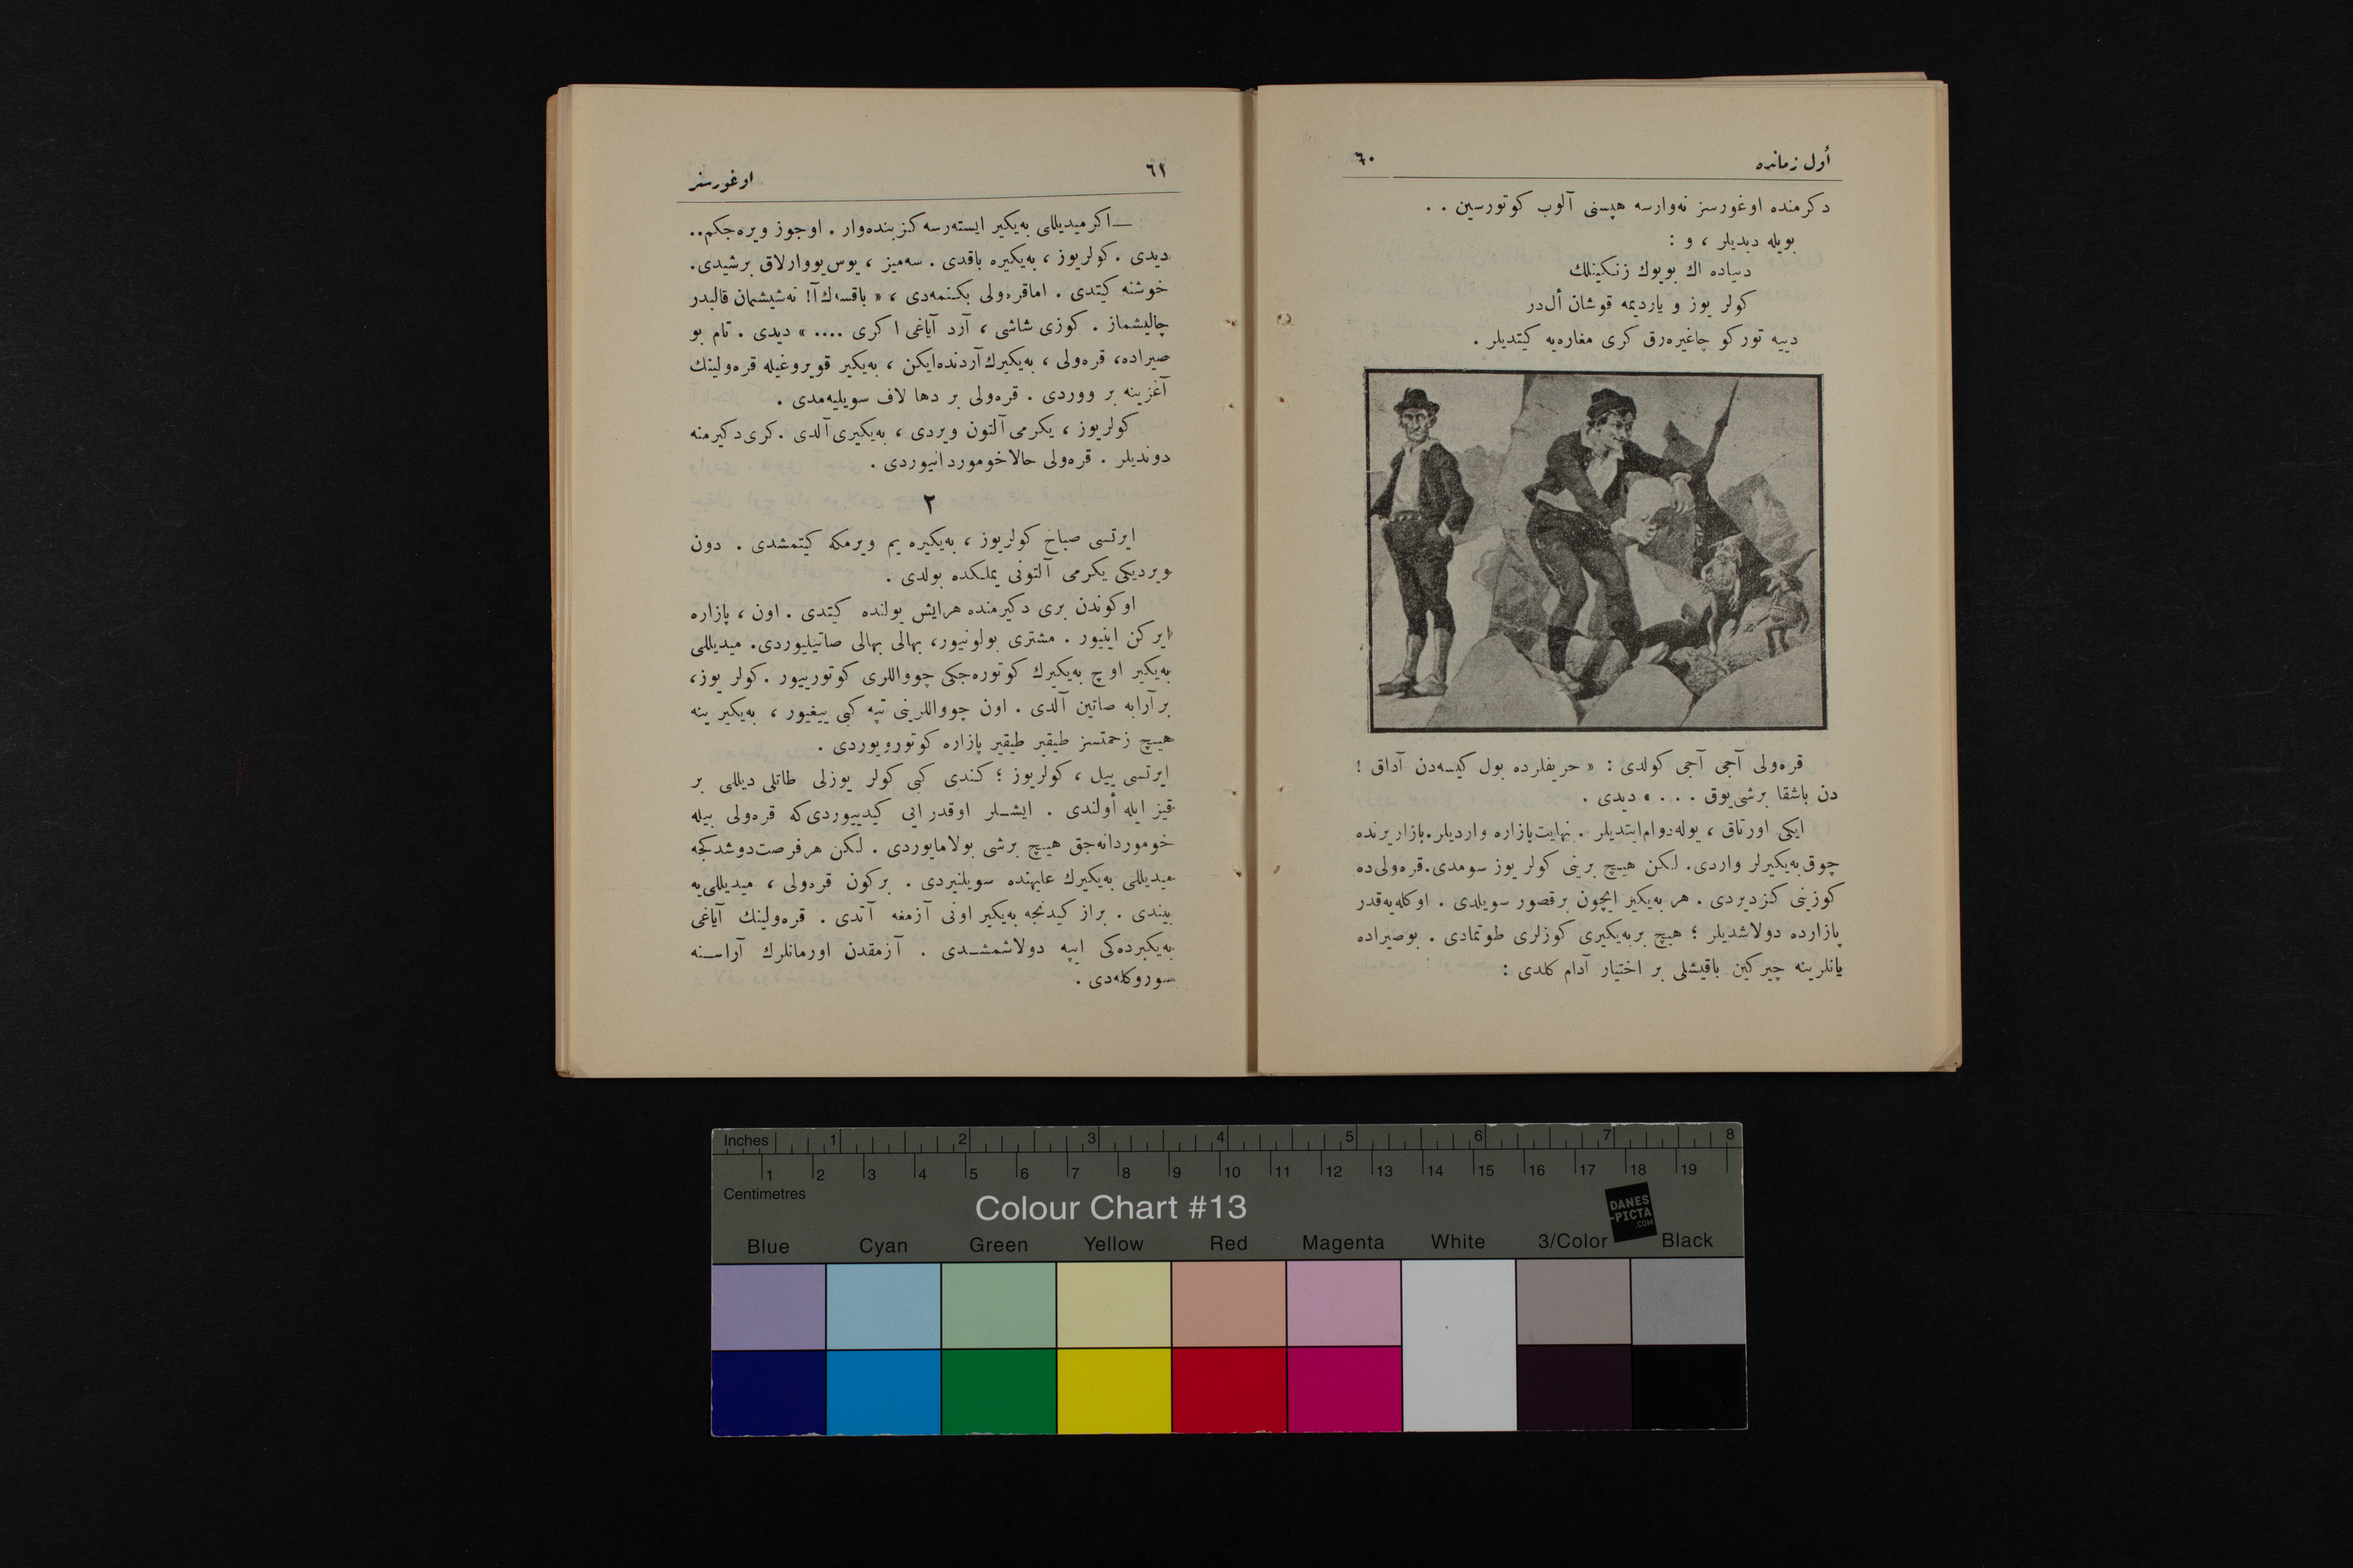 أول زمانده
٦٠
دكرمنده اوغورسز نه‌وارسه هپسنی آلوب كوتورسین . .
بویله دیدیلر ، و :
دنیاده اك بویوك زنكینلك
كولر یوز و یاردیمه قوشان أل‌در
دییه توركو چاغیره‌رق كری مغاره‌یه كیتدیلر .
قره‌ولی آجی آجی كولدی : « حریفلرده بول كیسه‌دن آداق !
دن باشقا برشی یوق . . . » دیدی .
ایكی اورتاق ، یوله‌دوام‌ایتدیلر . نهایت‌پازاره واردیلر.پازار یرنده
چوق‌به‌یكیرلر واردی. لكن هیچ برینی كولر یوز سومدی.قره‌ولی‌ده
كوزینی كزدیردی . هر به‌یكیر ایچون برقصور سویلدی . اوكله‌یه‌قدر
پازارده دولاشدیلر ؛ هیچ بربه‌یكیری كوزلری طوتمادی . بوصیراده
یانلرینه چیركین باقیشلی بر اختیار آدام كلدی :
٦١
اوغورسز
— اكر میدیللی به‌یكیر ایسته‌رسه‌كز بنده‌وار . اوجوز ویره‌جكم..
دیدی . كولریوز ، به‌یكیره باقدی . سه‌میز ، یوس‌یووارلاق برشیدی.
خوشنه كیتدی . اماقره‌ولی بكنمه‌دی ، « باقسه‌ك‌آ! نه‌شیشمان قالبدر
چالیشماز . كوزی شاشی ، آرد آیاغی اكری .... » دیدی . تام بو
صیراده، قره‌ولی ، به‌یكیرك‌آردنده‌ایكن ، به‌یكیر قویروغیله قره‌ولینك
آغزینه بر ووردی . قره‌ولی بر دها لاف سویلیه‌مدی .
كولریوز ، یكرمی‌آلتون ویردی ، به‌یكیری‌آلدی .كری‌دكیرمنه
دوندیلر . قره‌ولی حالاخوموردانیوردی .
٢
ایرتسی صباح كولریوز ، به‌یكیره یم ویرمكه كیتمشدی . دون
ویردیكی یكرمی آلتونی یملكده بولدی .
اوكوندن بری دكیرمنده هرایش یولنده كیتدی . اون ، پازاره
ایركن اینیور . مشتری بولونیور، بهالی بهالی صاتیلیوردی. میدیللی
به‌یكیر اوچ به‌یكیرك كوتوره‌جكی چوواللری كوتورییور .كولر یوز،
بر آرابه صاتین آلدی . اون چوواللرینی تپه كبی ییغیور ، به‌یكیر ینه
هیچ زحمتسز طیقیر طیقیر پازاره كوتورویوردی .
ایرتسی ییل ، كولریوز ؛ كندی كبی كولر یوزلی طاتلی دیللی بر
قیز ایله أولندی . ایشلر اوقدر ایی كیدییوردی‌كه قره‌ولی بیله
خوموردانه‌جق هیچ برشی بولامایوردی . لكن هرفرصت‌دوشدكجه
میدیللی به‌یكیرك علیهنده سویلنیردی . بركون قره‌ولی ، میدیللی‌یه
بیندی . براز كیدنجه به‌یكیر اونی آزمغه آتدی . قره‌ولینك آیاغی
به‌یكیرده‌كی ایپه دولاشمشدی . آزمقدن اورمانلرك آراسنه
سوروكله‌دی .
Inches
1 2 3 4 5 6 7 8
1 2 3 4 5 6 7 8 9 10 11 12 13 14 15 16 17 18 19
Centimetres
Colour Chart #13
DANES
-PICTA
.COM
Blue Cyan Green Yellow Red Magenta White 3/Color Black